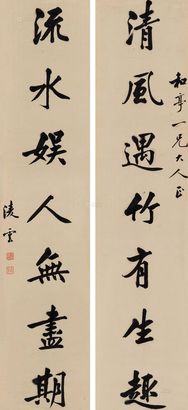 和亭一兄大人正
清風遇竹有生趣
流水娱人無盡期
凌雲